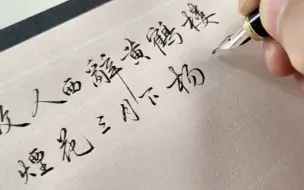 故人西辭黃鶴樓
煙花三月下揚